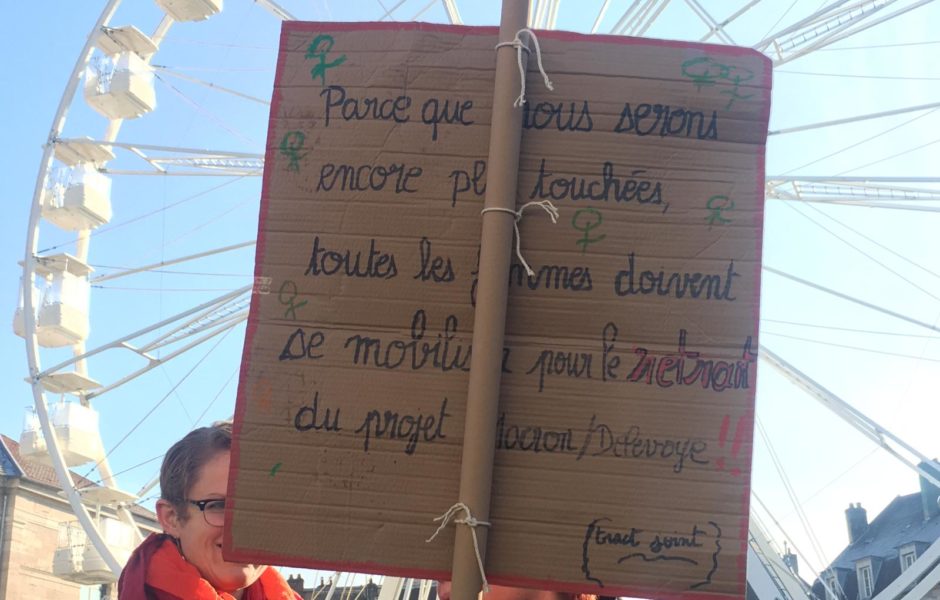 Parce que nous serons
encore plus touchées,
toutes les femmes doivent
se mobiliser pour le retrait
du projet Macron/Delevoye !!
(tract joint)